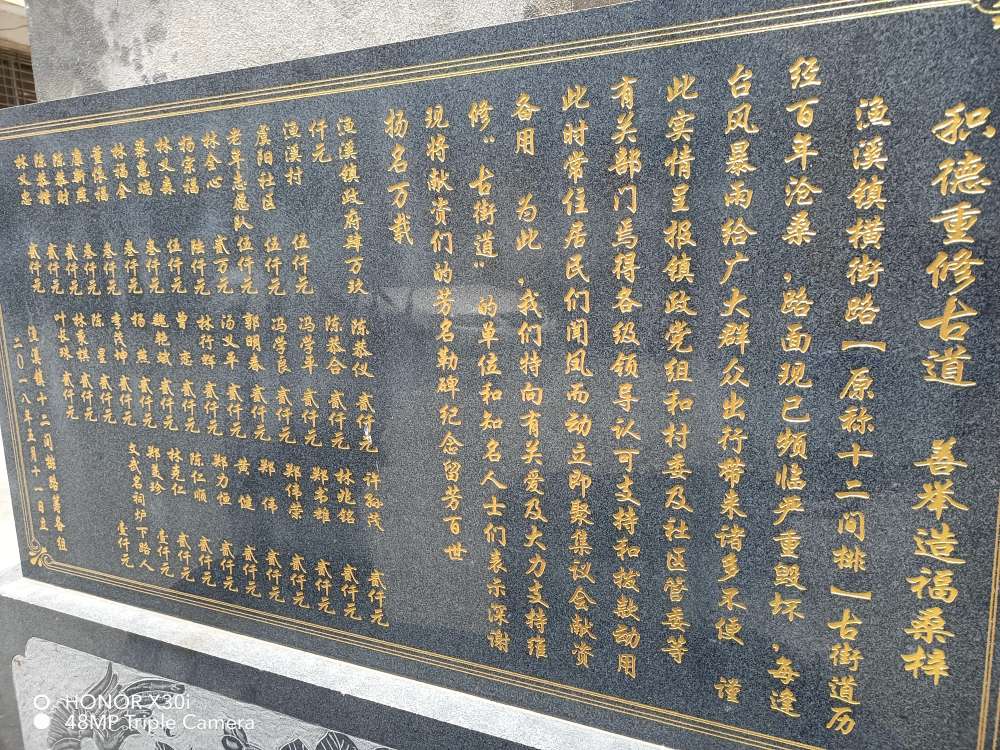 积德重修古道 善举造福桑梓
渔溪镇横街路【原称十二间排】古街道历
经百年沧桑，路面现已频临严重毁坏，每逢
台风暴雨给广大群众出行带来诸多不便 谨
此实情呈报镇政党组和村委及社区管委等
有关部门焉得各级领导认可支持和拨款动用
此时常住居民们闻风而动立即聚集议会献资
备用 为此，我们特向有关爱及大力支持维
修"古街道"的单位和知名人士们表示深谢
现将献资们的芳名勒碑纪念留芳百世
扬名万载
渔溪镇政府拜万玖
仟元
渔溪村 伍仟元
虞阳社区 伍仟元
老年志愿队 贰万元
林金心 陆仟元
杨宗福 伍仟元
林义森 叁仟元
蔡惠瑞 叁仟元
林福金 贰仟元
董保福 叁仟元
唐新燕 贰仟元
陈恭财 贰仟元
陈恭穜 贰仟元
林义忠 贰仟元
陈恭仪 贰仟元
陈恭合 贰仟元
冯学平 贰仟元
冯学良 贰仟元
郭明春 贰仟元
汤义平 贰仟元
林行辉 贰仟元
曾恋 贰仟元
魏艳斌 贰仟元
杨燕 贰仟元
李茂坤 贰仟元
陈星 贰仟元
林秉棋 贰仟元
叶长珠 贰仟元
许孙茂 贰仟元
林兆铭 贰仟元
郑书雄 贰仟元
郑伟荣 贰仟元
郑伟 贰仟元
黄健 贰仟元
郑力恒 贰仟元
陈仁顺 贰仟元
林克仁 贰仟元
郑美珍 壹仟元
文武名祠炉下路人 壹仟元
渔溪镇十二间排路筹备组
二0一八年五月十一日立
HONOR X30i
48MP Triple Camera